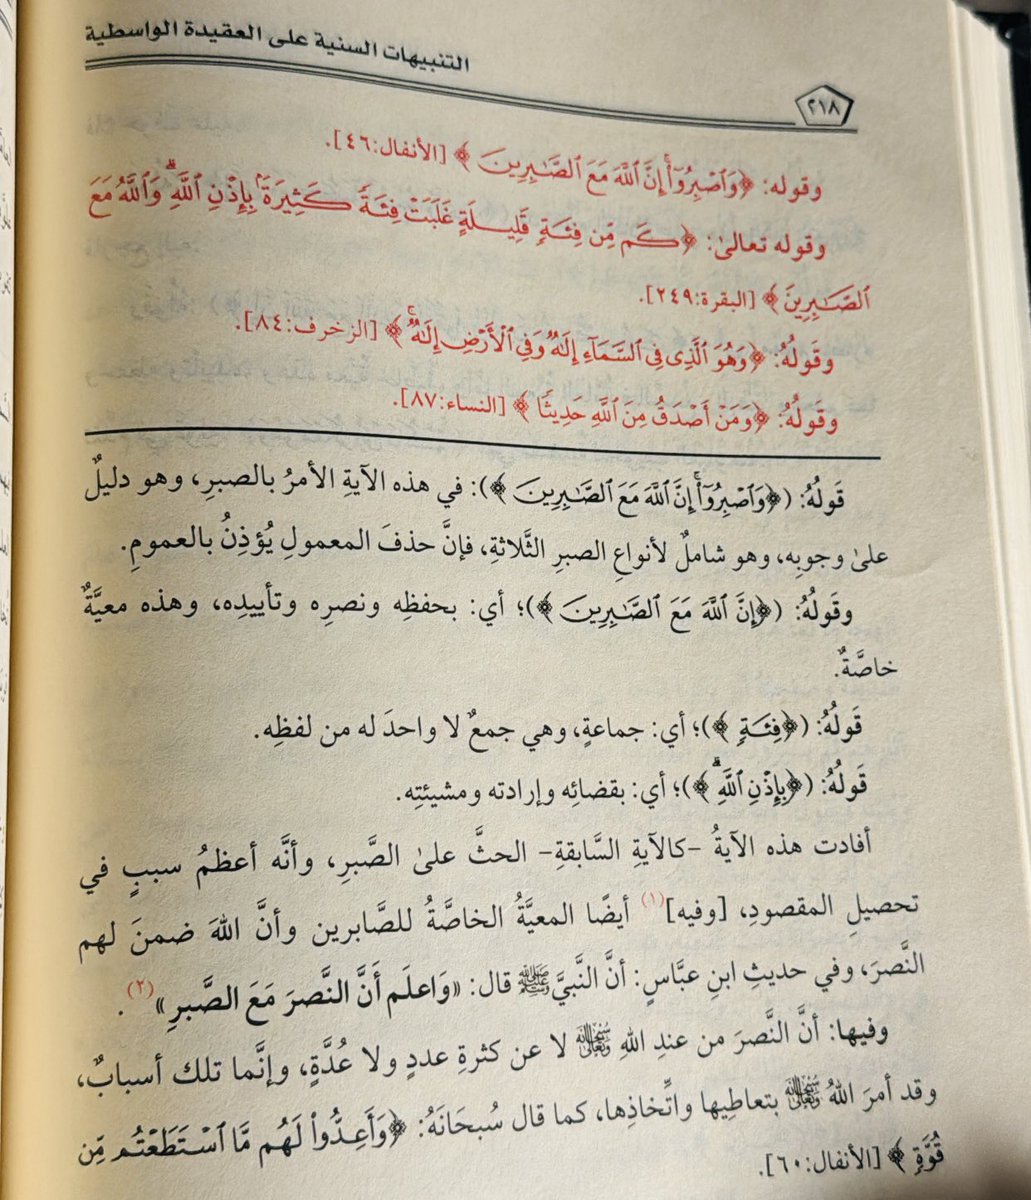 التنبيهات السنية على العقيدة الواسطية
٢١٨
وقوله: ﴿وَٱصۡبِرُوٓاْۚ إِنَّ ٱللَّهَ مَعَ ٱلصَّٰبِرِينَ﴾ [الأنفال:٤٦].
وقوله تعالىٰ: ﴿كَم مِّن فِئَةٖ قَلِيلَةٍ غَلَبَتۡ فِئَةٗ كَثِيرَةَۢ بِإِذۡنِ ٱللَّهِۗ وَٱللَّهُ مَعَ
ٱلصَّٰبِرِينَ﴾ [البقرة:٢٤٩].
وقَولُهُ: ﴿وَهُوَ ٱلَّذِي فِي ٱلسَّمَآءِ إِلَٰهٞ وَفِي ٱلۡأَرۡضِ إِلَٰهٞۚ﴾ [الزخرف:٨٤].
وقَولُهُ: ﴿وَمَنۡ أَصۡدَقُ مِنَ ٱللَّهِ حَدِيثٗا﴾ [النساء:٨٧].
قَولُهُ: (﴿وَٱصۡبِرُوٓاْۚ إِنَّ ٱللَّهَ مَعَ ٱلصَّٰبِرِينَ﴾): في هذه الآيةِ الأمرُ بالصبرِ، وهو دليلٌ
علىٰ وجوبِه، وهو شاملٌ لأنواعِ الصبرِ الثَّلاثةِ، فإنَّ حذفَ المعمولِ يُؤذِنُ بالعمومِ.
وقَولُهُ: (﴿إِنَّ ٱللَّهَ مَعَ ٱلصَّٰبِرِينَ﴾)؛ أي: بحفظِه ونصرِه وتأييدِه، وهذه معيَّةٌ
خاصَّةٌ.
قَولُهُ: (﴿فِئَةٖ﴾)؛ أي: جماعةٍ، وهي جمعٌ لا واحدَ له من لفظِه.
قَولُهُ: (﴿بِإِذۡنِ ٱللَّهِۗ﴾)؛ أي: بقضائِه وإرادته ومشيئتِه.
أفادت هذه الآيةُ -كالآيةِ السَّابقةِ- الحثَّ علىٰ الصَّبرِ، وأنَّه أعظمُ سببٍ في
تحصيلِ المقصودِ، [وفيه](١) أيضًا المعيَّةُ الخاصَّةُ للصَّابرين وأنَّ اللهَ ضمنَ لهم
النَّصرَ، وفي حديثِ ابنِ عبَّاسٍ: أنَّ النَّبيَّ ﷺ قال: «وَاعلَم أَنَّ النَّصرَ مَعَ الصَّبرِ»(٢).
وفيها: أنَّ النَّصرَ من عندِ اللهِ سُبْحَانَهُ وَتَعَالَى لا عن كثرةِ عددٍ ولا عُدَّةٍ، وإنَّما تلك أسبابٌ،
وقد أمرَ اللهُ سُبْحَانَهُ وَتَعَالَى بتعاطِيها واتِّخاذِها، كما قال سُبحَانَهُ: ﴿وَأَعِدُّواْ لَهُم مَّا ٱسۡتَطَعۡتُم مِّن
قُوَّةٖ﴾ [الأنفال:٦٠].